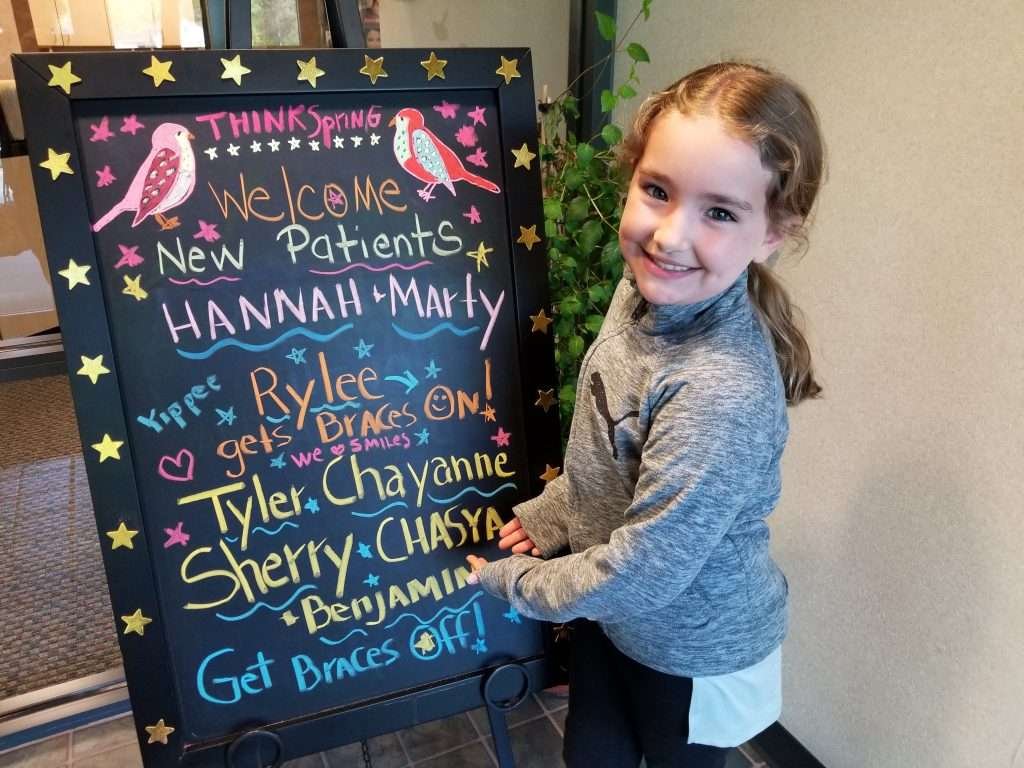 THINKSpring
Welcome
New Patients
HANNAH + Marty
Yippee
Rylee
gets Braces ON!
we smiles
Tyler Chayanne
Sherry CHASYA
+ Benjamin
Get Braces Off!